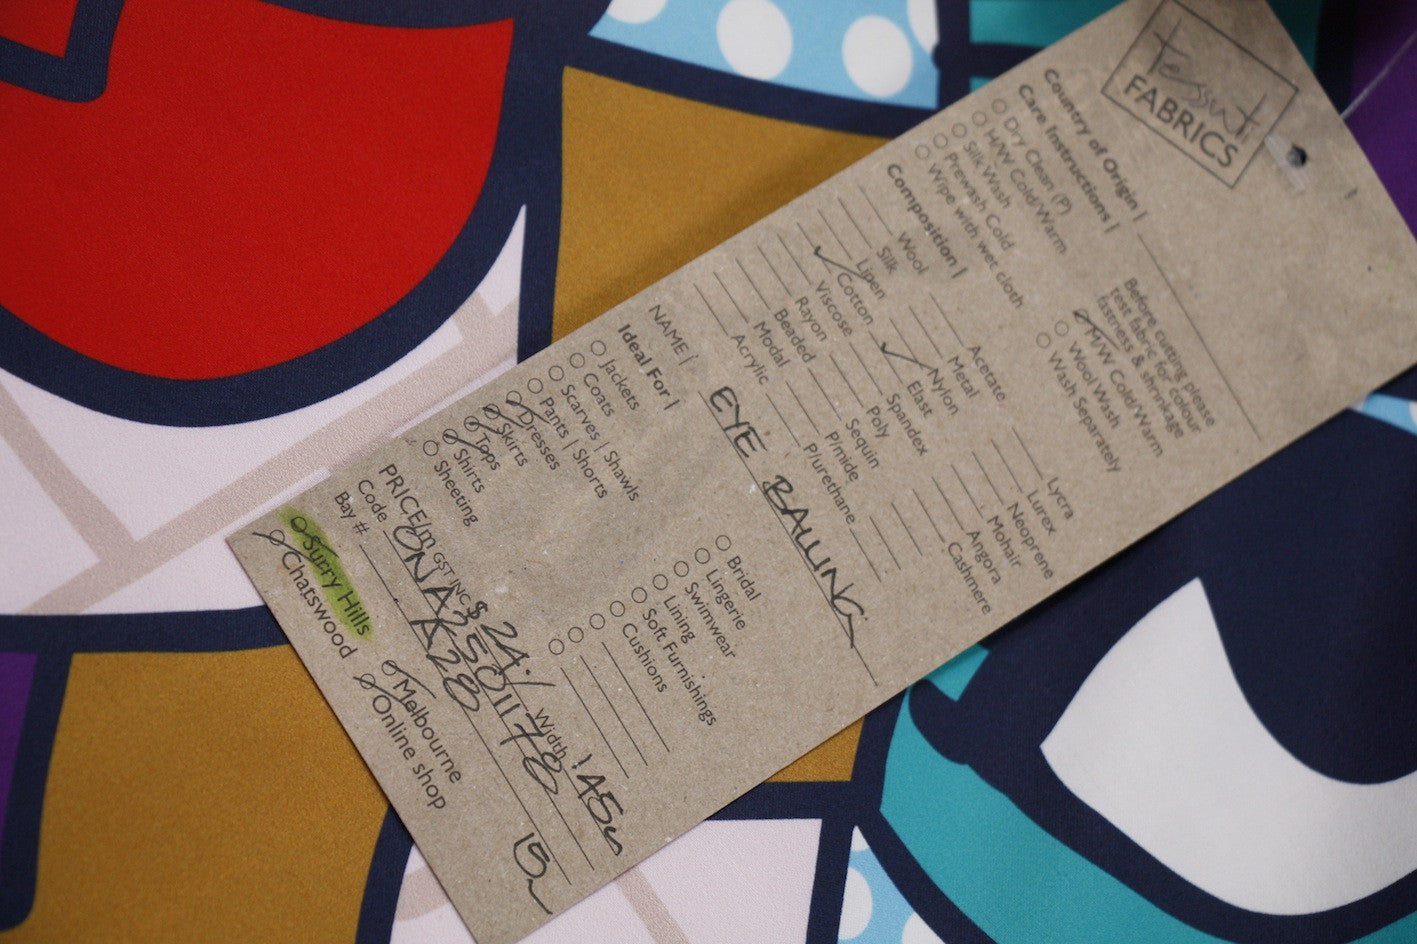 tessuti
FABRICS
Country of Origin |
Care Instructions |
Dry Clean (P)
H/W Cold/Warm
Silk Wash
Prewash Cold
Wipe with wet cloth
Before cutting please
test fabric for colour
fastness & shrinkage
M/W Cold/Warm
Wool Wash
Wash Separately
Composition |
Wool
Silk
Linen
Cotton
Viscose
Rayon
Beaded
Modal
Acrylic
Acetate
Metal
Nylon
Elast
Spandex
Poly
Sequin
P/mide
P/urethane
Lycra
Lurex
Neoprene
Mohair
Angora
Cashmere
NAME | EYE BALLING
Ideal For |
Jackets
Coats
Scarves | Shawls
Pants | Shorts
Dresses
Skirts
Tops
Shirts
Sheeting
Bridal
Lingerie
Swimwear
Lining
Soft Furnishings
Cushions
PRICE/m GST INC $ 24.- Width 145
Code
Bay # A28 15
Surry Hills
Chatswood
Melbourne
Online shop